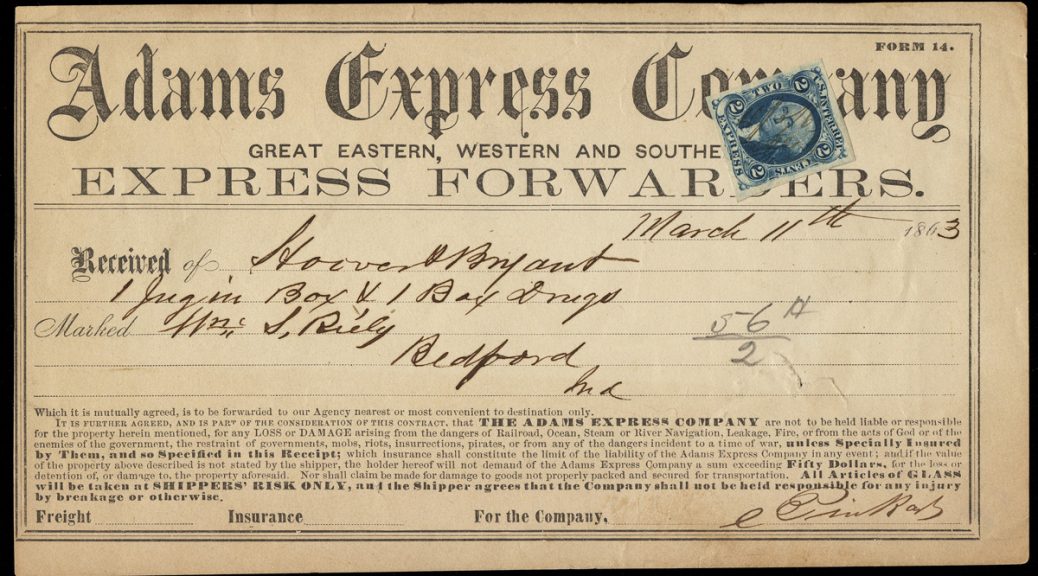 FORM 14.
Adams Express Company
GREAT EASTERN, WESTERN AND SOUTHE
EXPRESS FORWARDERS.
U.S. INTER. REV.
TWO
2 2
EXPRESS
CENTS
2 2
March 11th 1863
Received of Hoover & Bryant
1 Jug in Box & 1 Box Drugs
Marked Wm S. Riely
Bedford
Ind
56
2
Which it is mutually agreed, is to be forwarded to our Agency nearest or most convenient to destination only.
IT IS FURTHER AGREED, AND IS PART OF THE CONSIDERATION OF THIS CONTRACT, that THE ADAMS EXPRESS COMPANY are not to be held liable or responsible
for the property herein mentioned, for any LOSS or DAMAGE arising from the dangers of Railroad, Ocean, Steam or River Navigation, Leakage, Fire, or from the acts of God or of the
enemies of the government, the restraint of governments, mobs, riots, insurrections, pirates, or from any of the dangers incident to a time of war, unless Specially Insured
by Them, and so Specified in this Receipt; which insurance shall constitute the limit of the liability of the Adams Express Company in any event; and if the value
of the property above described is not stated by the shipper, the holder hereof will not demand of the Adams Express Company a sum exceeding Fifty Dollars, for the loss or
detention of, or damage to, the property aforesaid. Nor shall claim be made for damage to goods not properly packed and secured for transportation. All Articles of GLASS
will be taken at SHIPPERS' RISK ONLY, and the Shipper agrees that the Company shall not be held responsible for any injury
by breakage or otherwise.
Freight Insurance For the Company,